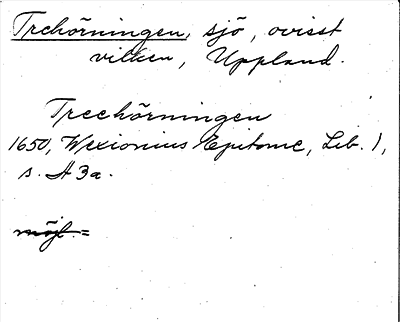 Trehörningen, sjö, ovisst
vilken, Uppland.
Treehörningen
1650, Wexionius Epitome, Lib. 1,
s. A3a.
möjl. =